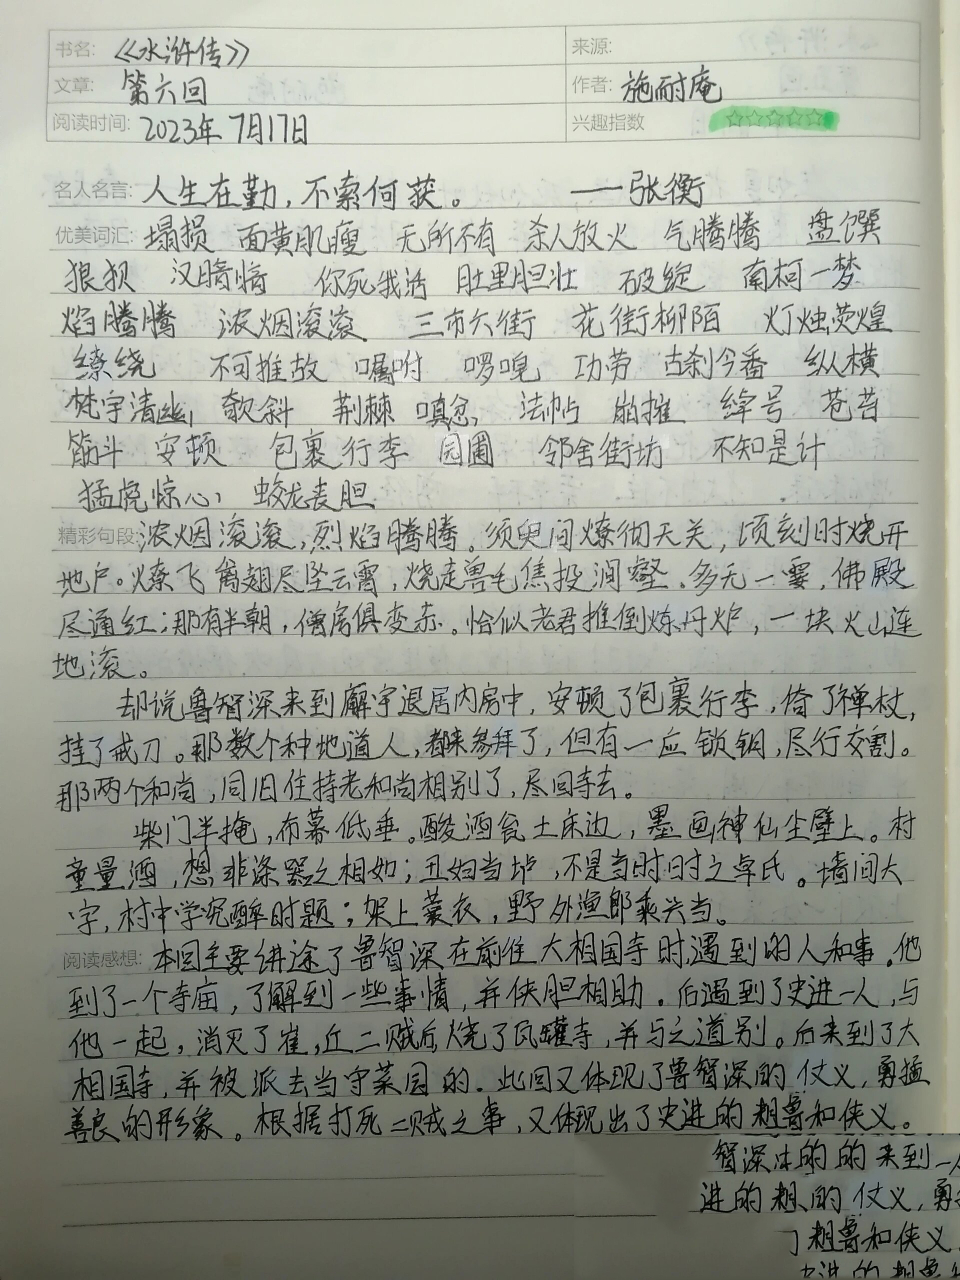 书名: 《水浒传》 来源:
文章: 第六回 作者: 施耐庵
阅读时间: 2023年7月17日 兴趣指数 ☆☆☆☆☆
名人名言: 人生在勤，不索何获。 ——张衡
优美词汇: 塌损 面黄肌瘦 无所不有 杀人放火 气腾腾 盘馔
狼狈 汉暗暗 你死我活 肚里胆壮 破绽 南柯一梦
焰腾腾 浓烟滚滚 三市六街 花街柳陌 灯烛荧煌
缭绕 不可推故 嘱咐 啰唣 功劳 古刹今番 纵横
梵宇清幽 欹斜 荆棘 嗔忿 法帖 崩摧 绰号 苍苔
筋斗 安顿 包裹行李 园圃 邻舍街坊 不知是计
猛虎惊心 蛟龙丧胆
精彩句段: 浓烟滚滚，烈焰腾腾。须臾间燎彻天关，顷刻时烧开
地户。燎飞禽翅尽坠云霄，烧走兽毛焦投涧壑。多无一霎，佛殿
尽通红；那有半朝，僧房俱变赤。恰似老君推倒炼丹炉，一块火山连
地滚。
却说鲁智深来到廨宇退居内房中，安顿了包裹行李，倚了禅杖，
挂了戒刀。那数个种地道人，都来参拜了，但有一应锁钥，尽行交割。
那两个和尚，同旧住持老和尚相别了，尽回寺去。
柴门半掩，布幕低垂。酸酒瓮土床边，墨画神仙尘壁上。村
童量酒，想非涤器之相如；丑妇当垆，不是当时旧时之卓氏。墙间大
字，村中学究醉时题；架上蓑衣，野外渔郎乘兴当。
阅读感想: 本回主要讲途了鲁智深在前往大相国寺时，遇到的人和事。他
到了一个寺庙，了解到一些事情，并侠胆相助。后遇到了史进一人，与
他一起，消灭了崔，丘二贼后烧了瓦罐寺，并与之道别。后来到了大
相国寺，并被派去当守菜园的。此回又体现了鲁智深的仗义，勇猛
善良的形象。根据打死二贼之事，又体现出了史进的粗鲁和侠义。
智深 的的来到一
进的粗的仗义，勇
了粗鲁和侠义